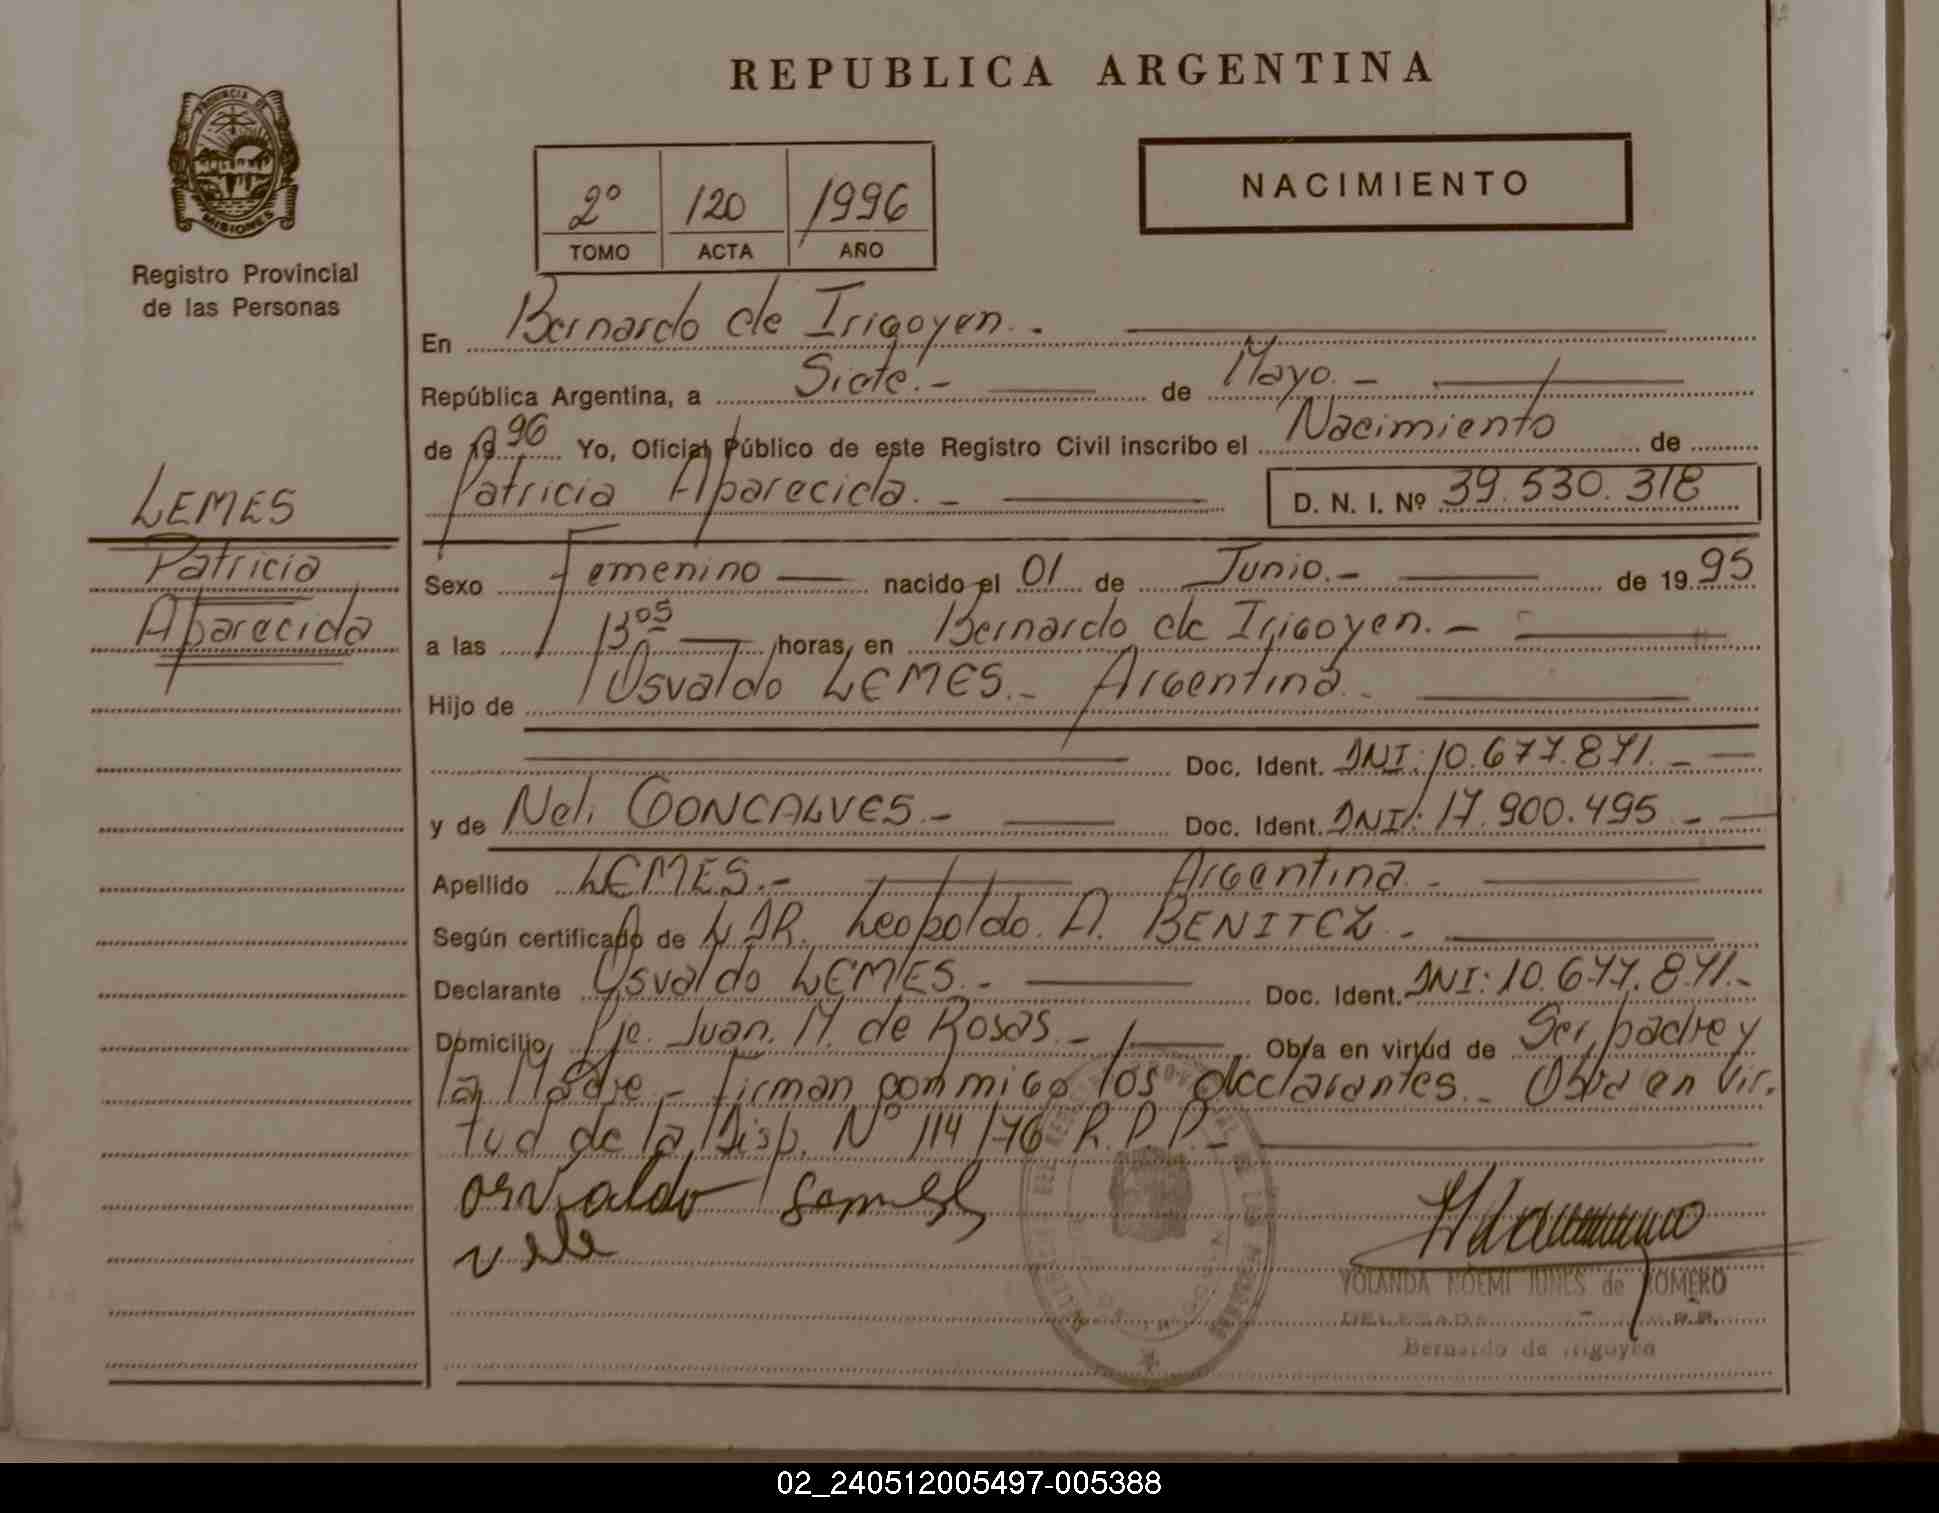 REPUBLICA ARGENTINA
PROVINCIA DE
MISIONES
Registro Provincial
de las Personas
2º 120 1996
TOMO ACTA AÑO
NACIMIENTO
En Bernardo de Irigoyen.-
República Argentina, a Siete.- de Mayo.-
de 1996 Yo, Oficial Público de este Registro Civil inscribo el Nacimiento de
Patricia Aparecida.- D. N. I. Nº 39.530.318
LEMES
Patricia
Aparecida
Sexo Femenino nacido el 01 de Junio.- de 1995
a las 13 05 horas, en Bernardo de Irigoyen.-
Hijo de Osvaldo LEMES.- Argentina.-
Doc. Ident. DNI: 10.677.871.-
y de Neli GONCALVES.- Doc. Ident. DNI: 17.900.495.-
Apellido LEMES.- Argentina.-
Según certificado de DR. Leopoldo. A. BENITEZ.-
Declarante Osvaldo LEMES.- Doc. Ident. DNI: 10.677.871.-
Domicilio Pje. Juan. M. de Rosas.- Obra en virtud de Ser padre y
la Madre.- Firman conmigo los declarantes.- Obra en Vir-
tud de la Disp. Nº 114/76 R.P.P.-
osvaldo
YOLANDA NOEMI JUNES de ROMERO
DELEGADA
Bernardo de Irigoyen
02_240512005497-005388